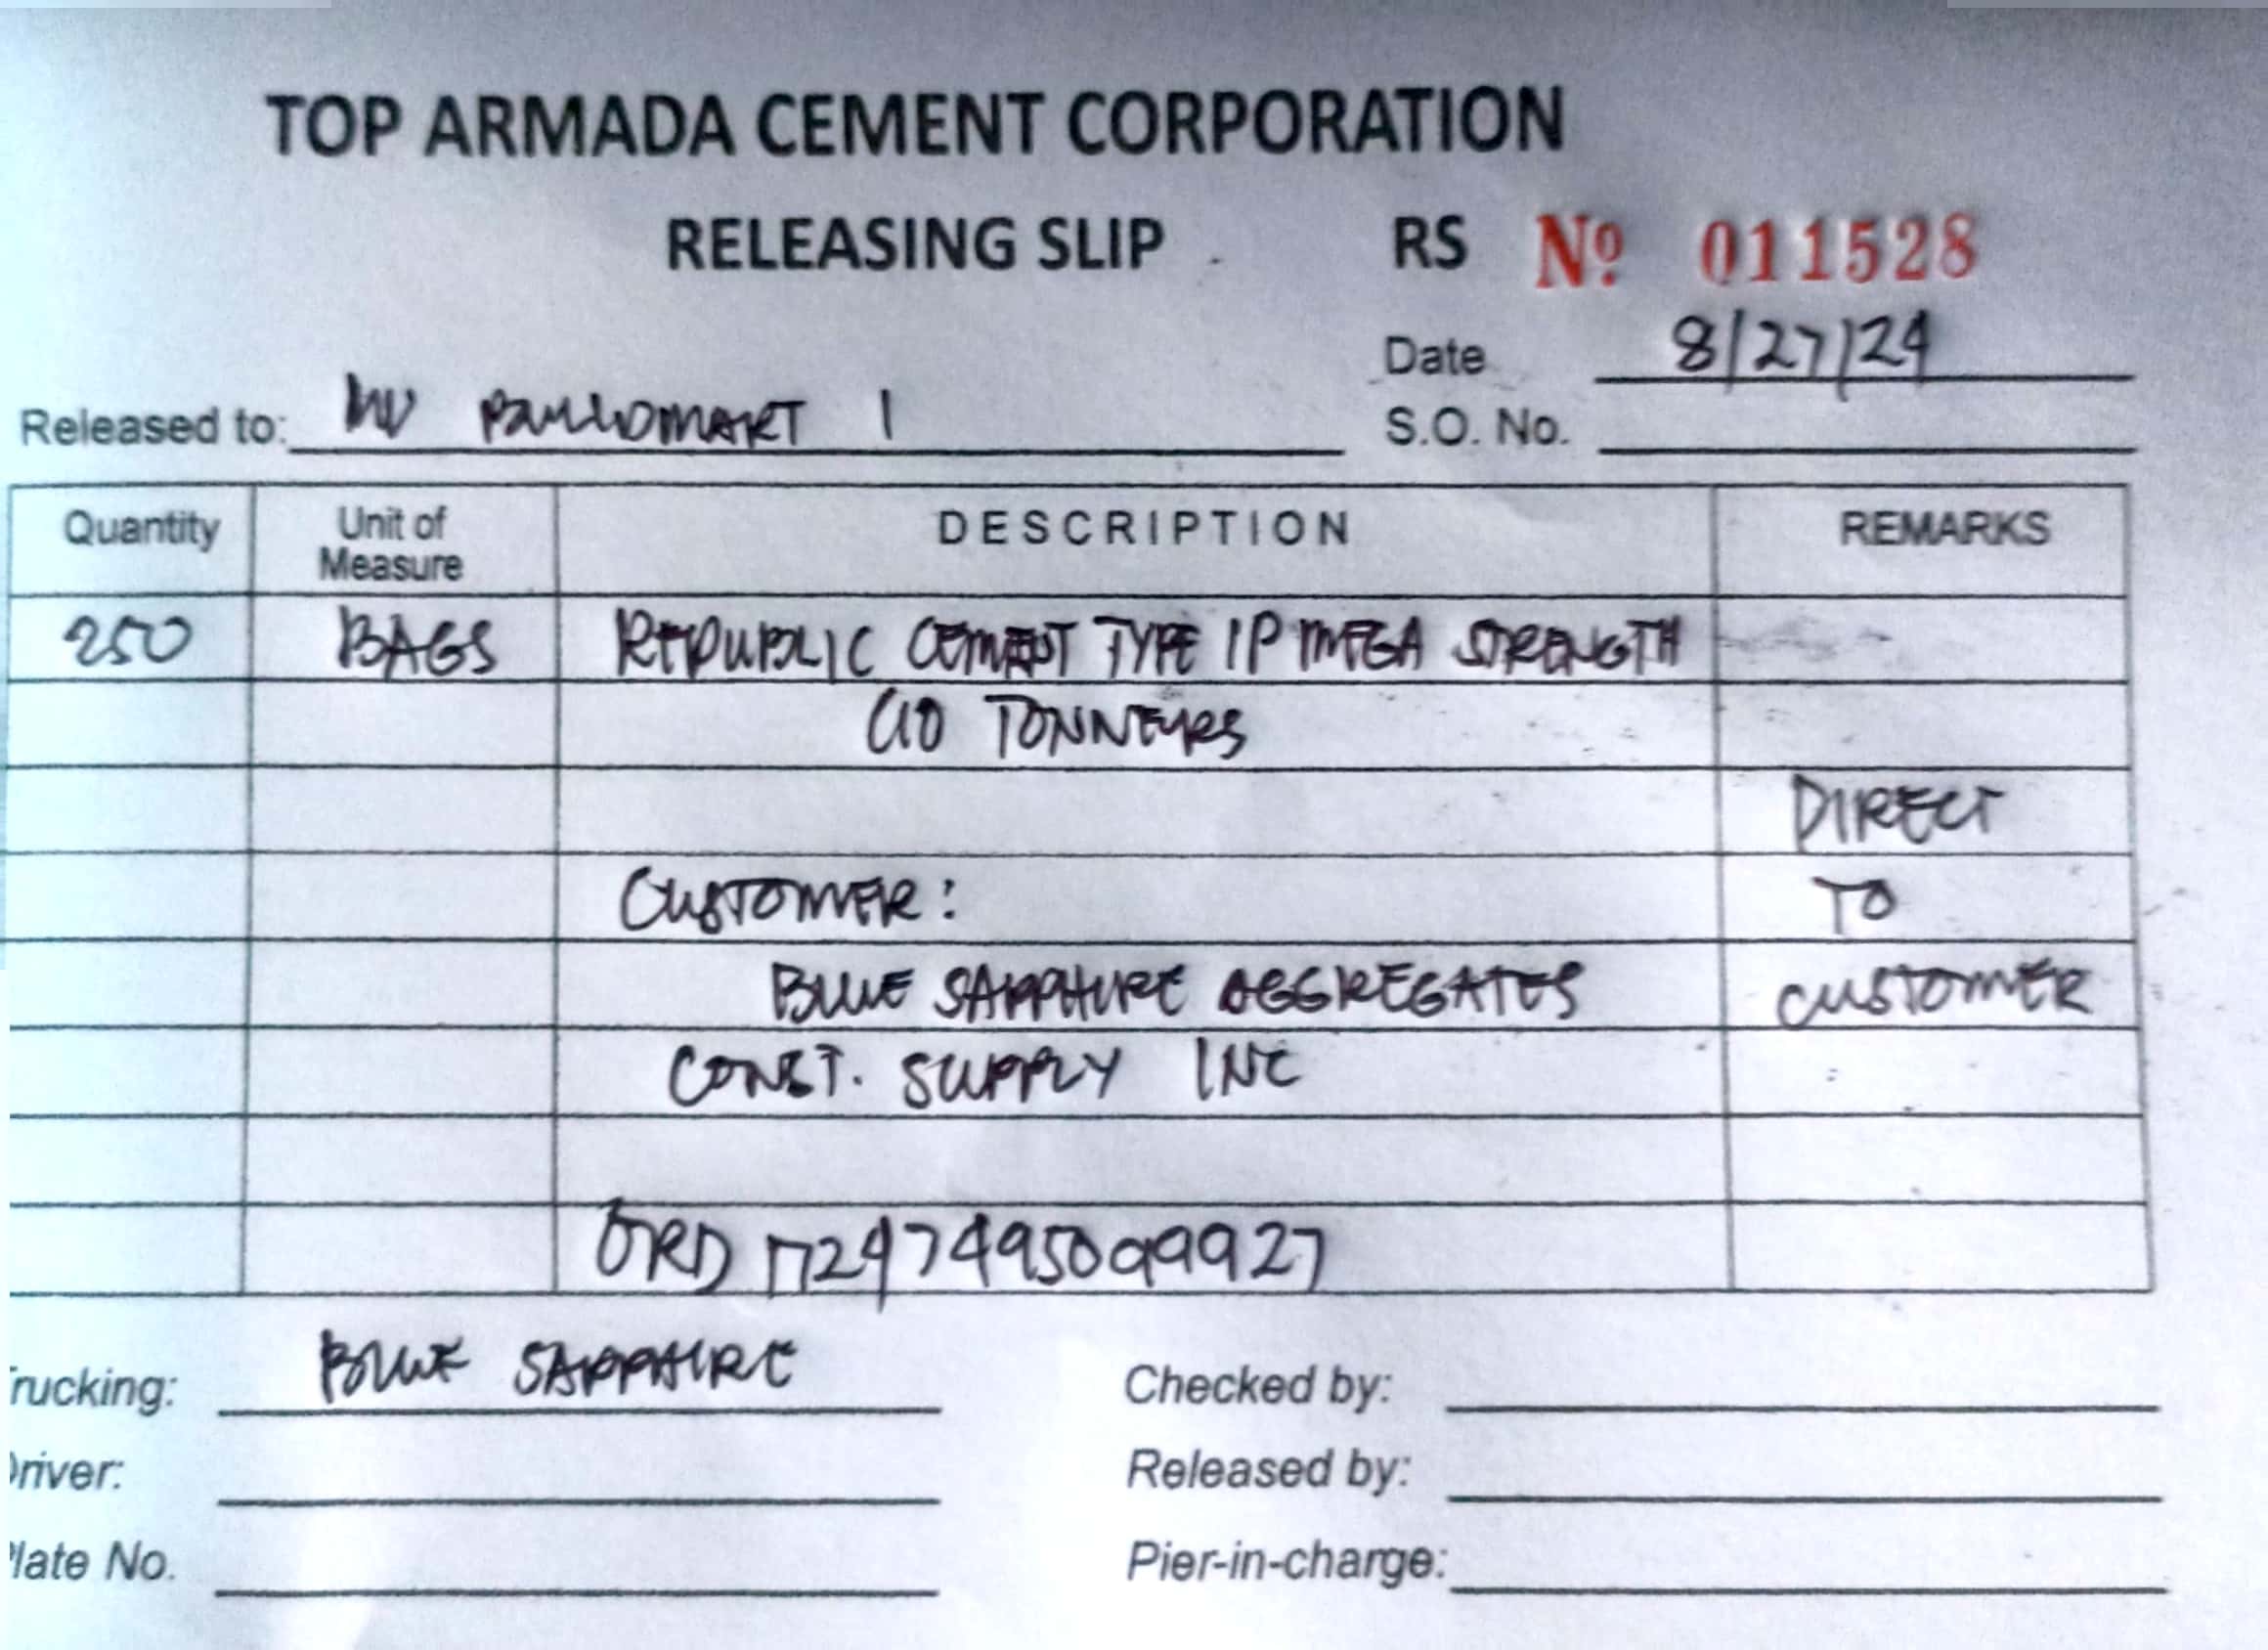 TOP ARMADA CEMENT CORPORATION
RELEASING SLIP RS Nº 011528
Date 8/27/24
Released to: MV 1
S.O. No.
Quantity Unit of Measure DESCRIPTION REMARKS
250 BAGS REPUBLIC CEMENT TYPE 1P MEGA STRENGTH
TONNERS
DIRECT
CUSTOMER: TO
BLUE SAPPHIRE AGGREGATES CUSTOMER
CONST. SUPPLY INC
ORD 1724749509927
rucking: BLUE SAPPHIRE Checked by:
river: Released by:
late No. Pier-in-charge: